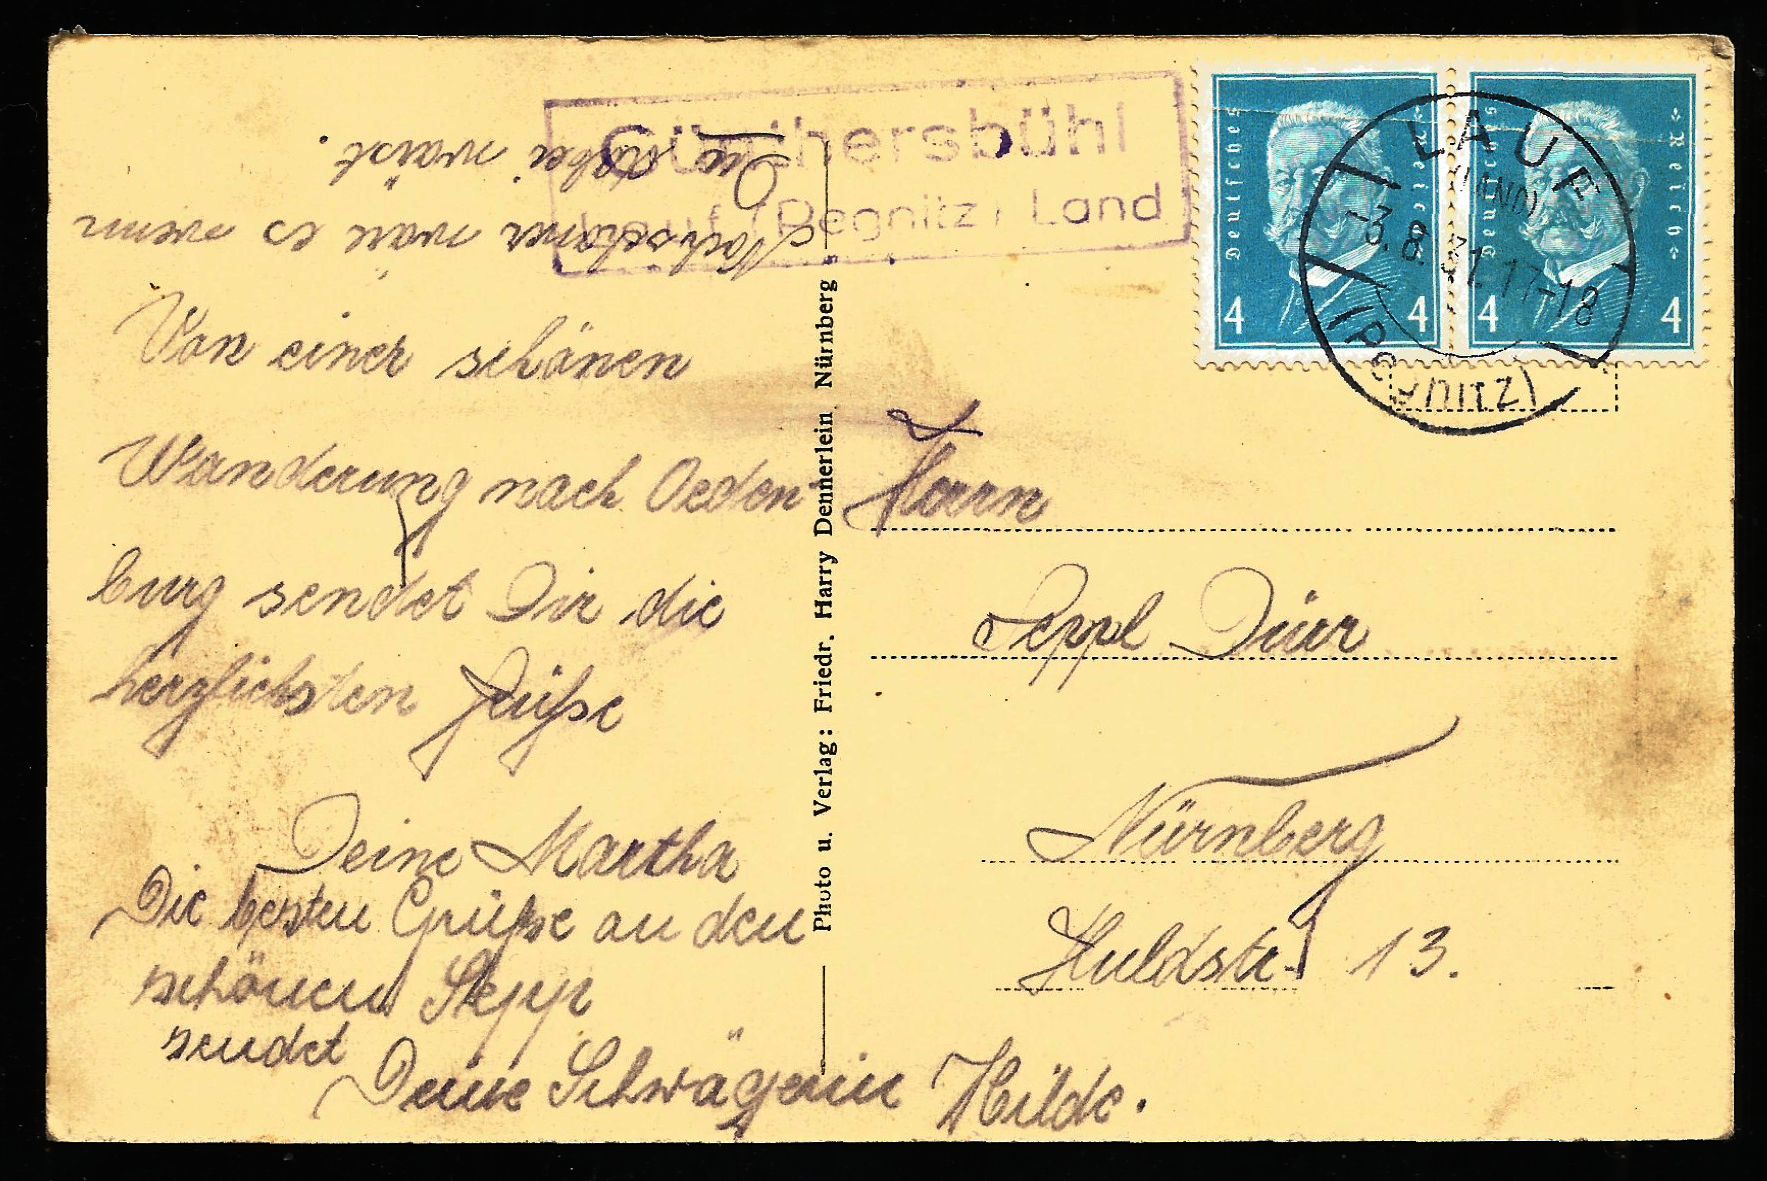 Günthersbühl
Lauf (Pegnitz) Land
Deutsches Reich
4 4
Deutsches Reich
4 4
LAUF
(LAND)
-3.8.31.17-18
(PEGNITZ)
Noch schöner wäre es wenn
Du dabei wärst.
Von einer schönen
Wanderung nach Oeden-
burg sendet Dir die
herzlichsten Grüße
Deine Martha
Die besten Grüße an den
schönen Sepp
sendet
Deine Schwägerin Hilde.
Photo u. Verlag: Friedr. Harry Dennerlein Nürnberg
Herrn
Seppl Dürr
Nürnberg
Huldstr. 13.